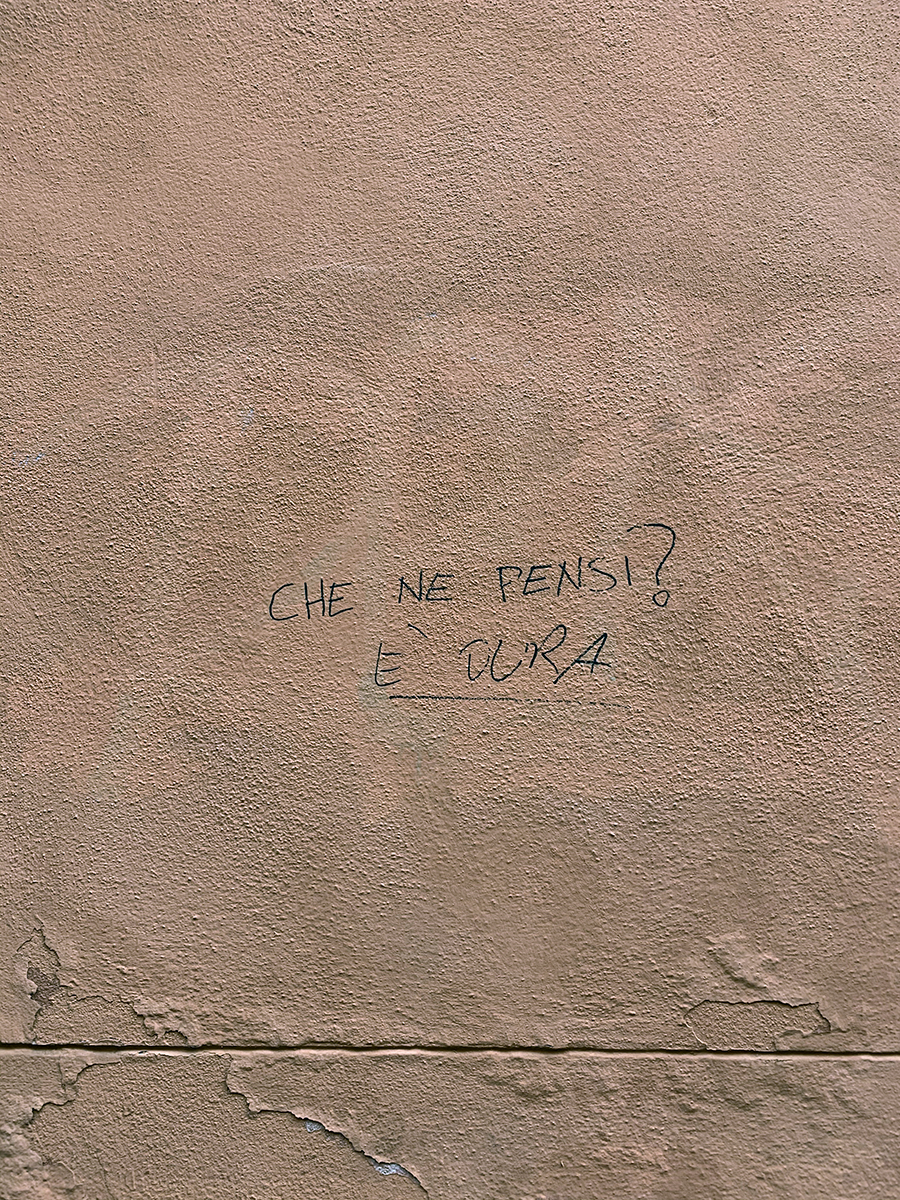 CHE NE PENSI?
È DURA